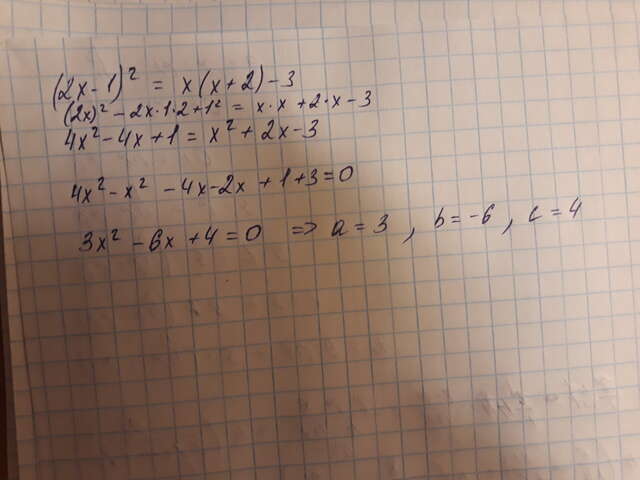 (2x-1)² = x(x+2)-3
(2x)² - 2x·1·2+1² = x·x+2·x-3
4x²-4x+1 = x²+2x-3
4x²-x² -4x-2x +1+3=0
3x²-6x+4=0 => a=3, b=-6, c=4